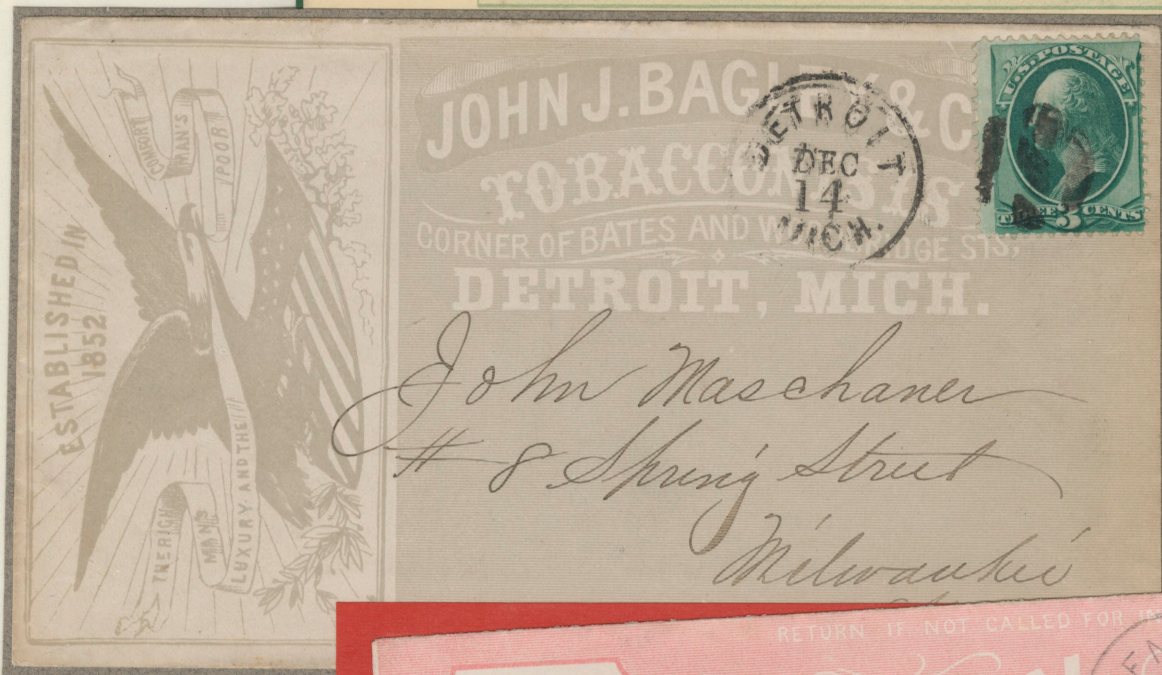 ESTABLISHED IN
1852
THE RICH
MAN'S
LUXURY AND THE
POOR
MAN'S
COMFORT
JOHN J. BAGLEY & C
TOBACCONISTS
CORNER OF BATES AND WOODBRIDGE STS,
DETROIT, MICH.
DETROIT
DEC
14
MICH.
U.S. POSTAGE
THREE 3 CENTS
John Maschaner
# 8 Spring Street
Milwaukie
RETURN IF NOT CALLED FOR IN